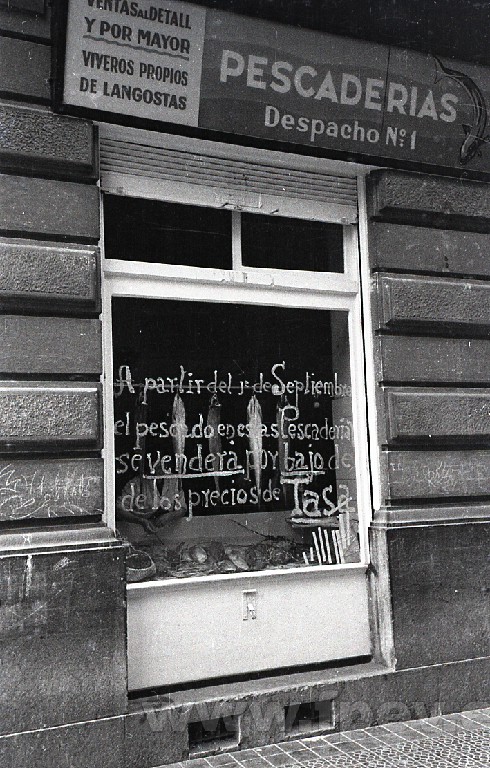 VENTAS AL DETALL
Y POR MAYOR
VIVEROS PROPIOS
DE LANGOSTAS
PESCADERIAS
Despacho Nº 1
A partir del 1º de Septiembre
el pescado en estas Pescaderia
se vendera por bajo de
de los precios de Tasa